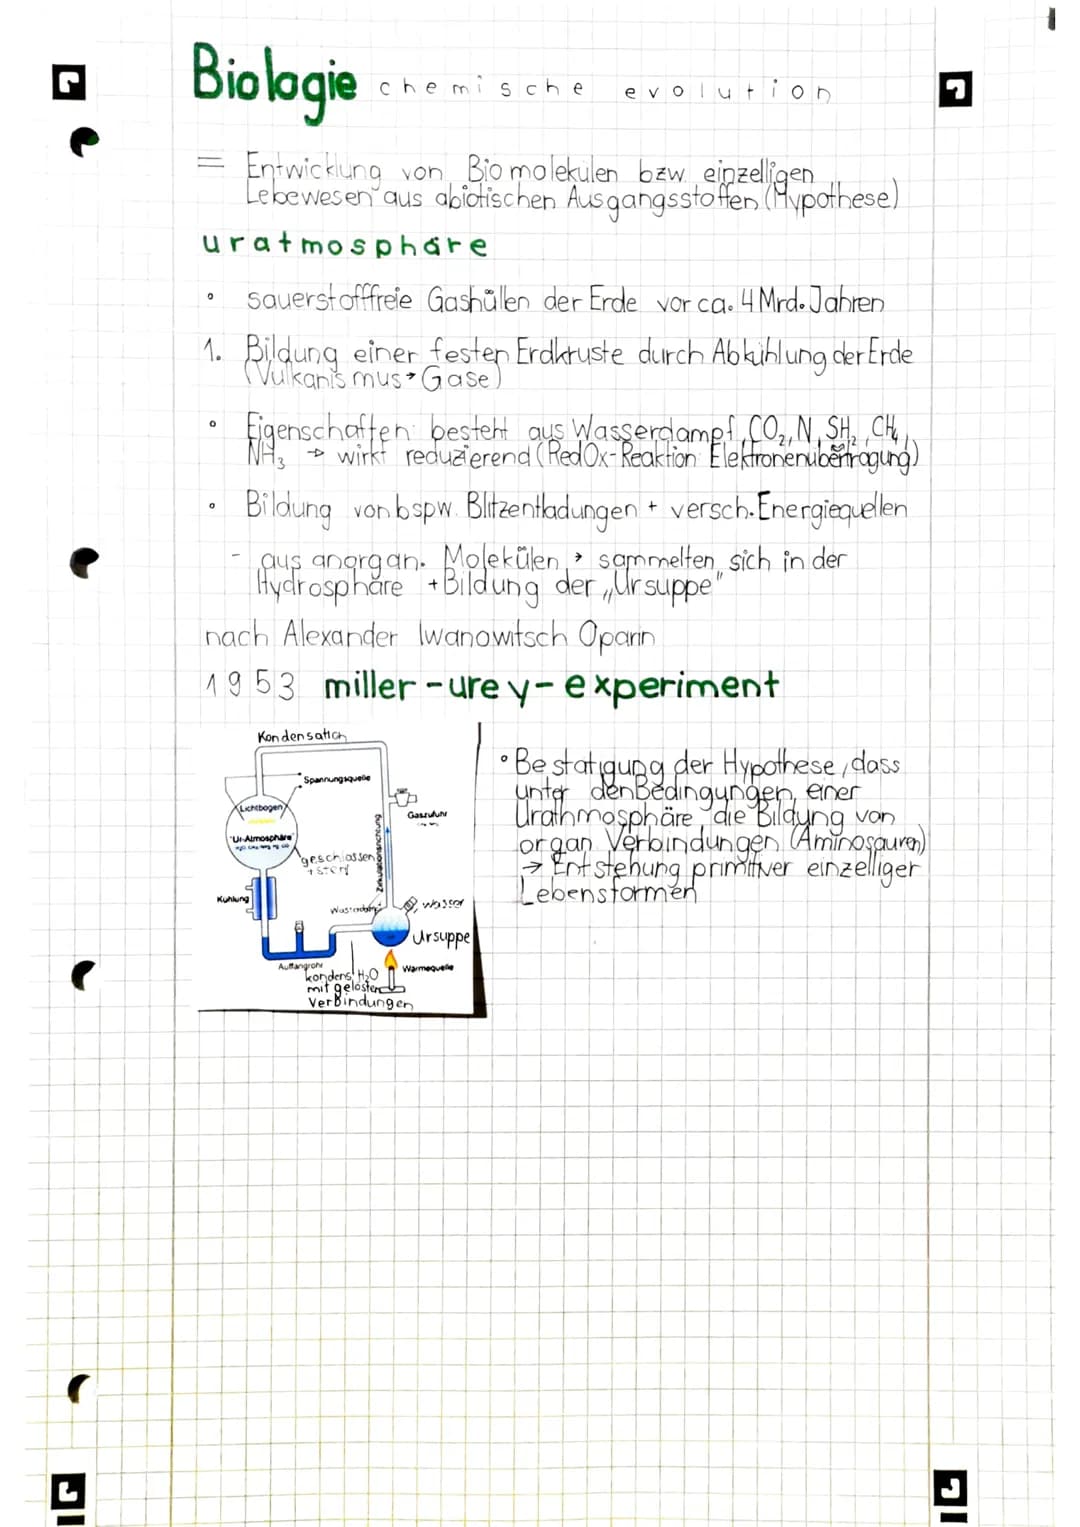 Biologie chemische evolution
= Entwicklung von Biomolekülen bzw. einzelligen
Lebewesen aus abiotischen Ausgangsstoffen (Hypothese)
uratmosphäre
• sauerstofffreie Gashüllen der Erde vor ca. 4 Mrd. Jahren
1. Bildung einer festen Erdkruste durch Abkühlung der Erde
(Vulkanismus → Gase)
• Eigenschaften: besteht aus Wasserdampf, CO₂, N, SH₂, CH₄,
NH₃ → wirkt reduzierend (RedOx-Reaktion Elektronenübertragung)
• Bildung von bspw. Blitzentladungen + versch. Energiequellen
- aus anorgan. Molekülen → sammelten sich in der
Hydrosphäre + Bildung der „Ursuppe"
nach Alexander Iwanowitsch Oparin
1953 miller-urey-experiment
Kondensation
Spannungsquelle
Lichtbogen
"Ur-Atmosphäre"
Gaszufuhr
Zirkulationsrichtung
geschlossen
Kühlung
Wasser
Ursuppe
Auffangrohr
Wärmequelle
kondens. H₂O
mit gelösten
Verbindungen
• Bestätigung der Hypothese, dass
unter den Bedingungen einer
Urathmosphäre die Bildung von
organ. Verbindungen (Aminosäuren)
→ Entstehung primitiver einzelliger
Lebensformen